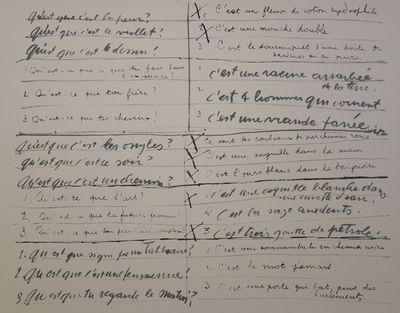 Qu'est que c'est la peur?
Qu'est que c'est le violet?
Qu'est que c'est le dessin?
1. Qu'est-ce que ce que tu fais dans l'existence?
2. Qu'est-ce que ton frère?
3. Qu'est-ce que tes cheveux?
Qu'est que c'est les ongles?
qu'est que c'est ce soir?
Qu'est que c'est un
1. Qu'est-ce que l'art?
2. Qu'est-ce que ta future femme?
3. Qui est-ce que ton principal
1. Qu'est que signifie un tableau?
2. Qu'est que c'est une femme nue?
3. Qu'est que tu regarde le matin?
1. C'est un fleuve de coton hydrophile
2. C'est une mouche double.
3. C'est le tourniquet d'une boîte de sardines
1. C'est une racine arrachée de la terre.
2. C'est 4 hommes qui courent
3. C'est une viande fanée
Ce sont des rouleaux de parchemin
C'est une anguille dans la main
C'est l'ours blanc dans la baignoire
1. C'est une coquille blanche dans une cuvette d'eau.
2. C'est la rage aux dents.
3. C'est trois goutte de pétrole!
1. C'est une somnambule en chemise noire
2. C'est le mot jamais
3. C'est une porte qui bat, puis des